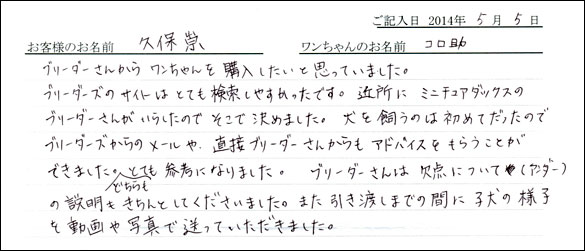 ご記入日 2014年 5月 5日
お客様のお名前 久保崇 ワンちゃんのお名前 コロ助
ブリーダーさんから ワンちゃんを購入したいと思っていました。
ブリーダーズのサイトはとても検索しやすかったです。近所に ミニチュアダックスの
ブリーダーさんがいらしたので そこで決めました。犬を飼うのは初めてだったので
ブリーダーズからのメールや、直接ブリーダーさんからもアドバイスをもらうことが
できました。どちらもとても参考になりました。 ブリーダーさんは 欠点について(アンダー)
の説明もきちんとしてくださいました。また引き渡しまでの間に子犬の様子
を動画や写真で送っていただきました。